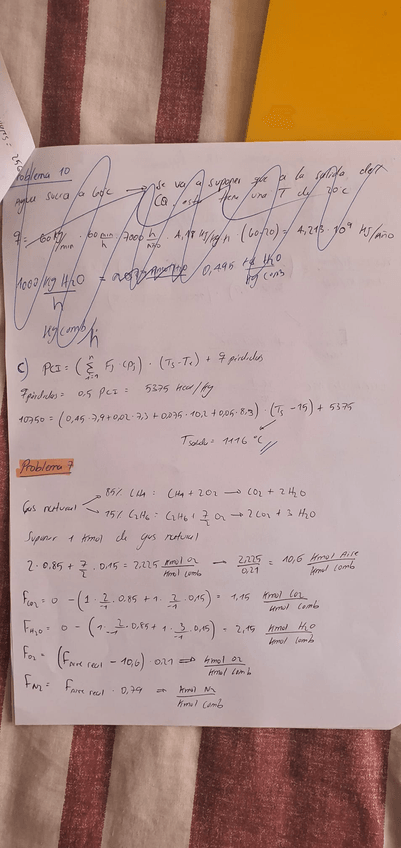 Problema 10
Agua sucia a 60°C → Se va a suponer que a la salida del
CQ esta tiene una T de 20°C
q = 60 kg/min · 60 min/h · 7000 h/año · 4,18 kJ/kg·K (60-20) = 4,213 · 10⁹ kJ/año
1002 kg H₂O / h = 0,495 kg H₂O / kg comb
kg comb / h
c) PCI = (Σ Fj · Cpj) · (Ts - Te) + q pérdidas
q pérdidas = 0,5 PCI = 5375 kcal/kg
10750 = (0,45 · 7,9 + 0,02 · 7,3 + 0,075 · 10,2 + 0,05 · 8,3) · (Ts - 15) + 5375
Tsalida = 1116 °C //
Problema 7
Gas natural
85% CH4 = CH4 + 2O2 → CO2 + 2H2O
15% C2H6 = C2H6 + 7/2 O2 → 2CO2 + 3H2O
Suponer 1 kmol de gas natural
2 · 0.85 + 7/2 · 0.15 = 2,225 kmol O2 / kmol comb → 2,225 / 0.21 = 10,6 kmol Aire / kmol comb
FCO2 = 0 - (1 · 2/-1 · 0.85 + 1 · 2/-1 · 0.15) = 1,15 kmol CO2 / kmol comb
FH2O = 0 - (1 · 2/-1 · 0.85 + 1 · 3/-1 · 0.15) = 2,15 kmol H2O / kmol comb
FO2 = (Faire real - 10,6) · 0.21 ⇒ kmol O2 / kmol comb
FN2 = Faire real · 0,79 ⇒ kmol N2 / kmol comb